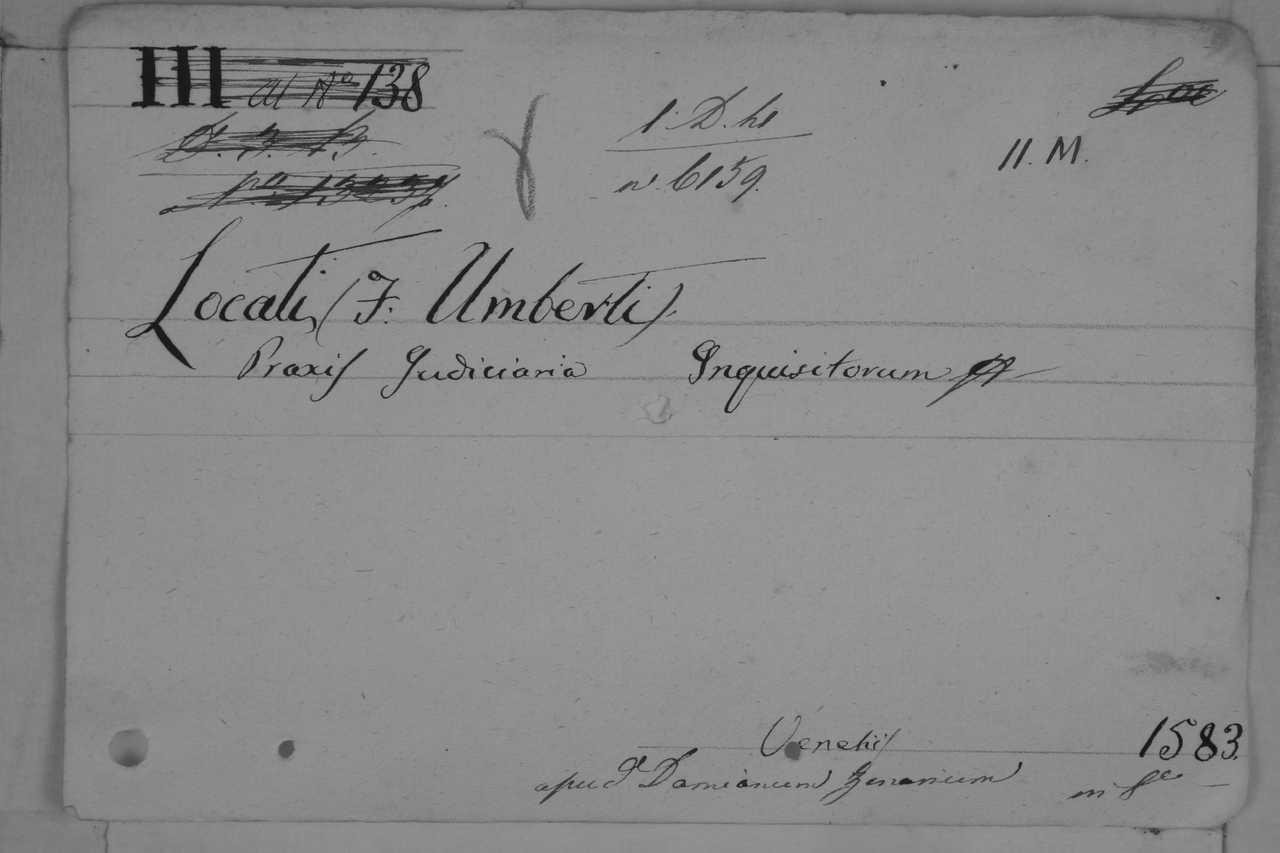 III al Nº 138
1. D. hs
n. 6159.
II. M.
Locati, (F: Umberti)
Praxis Judiciaria Inquisitorum
Venetiis 1583.
apud Damianum Zenarium in 8º